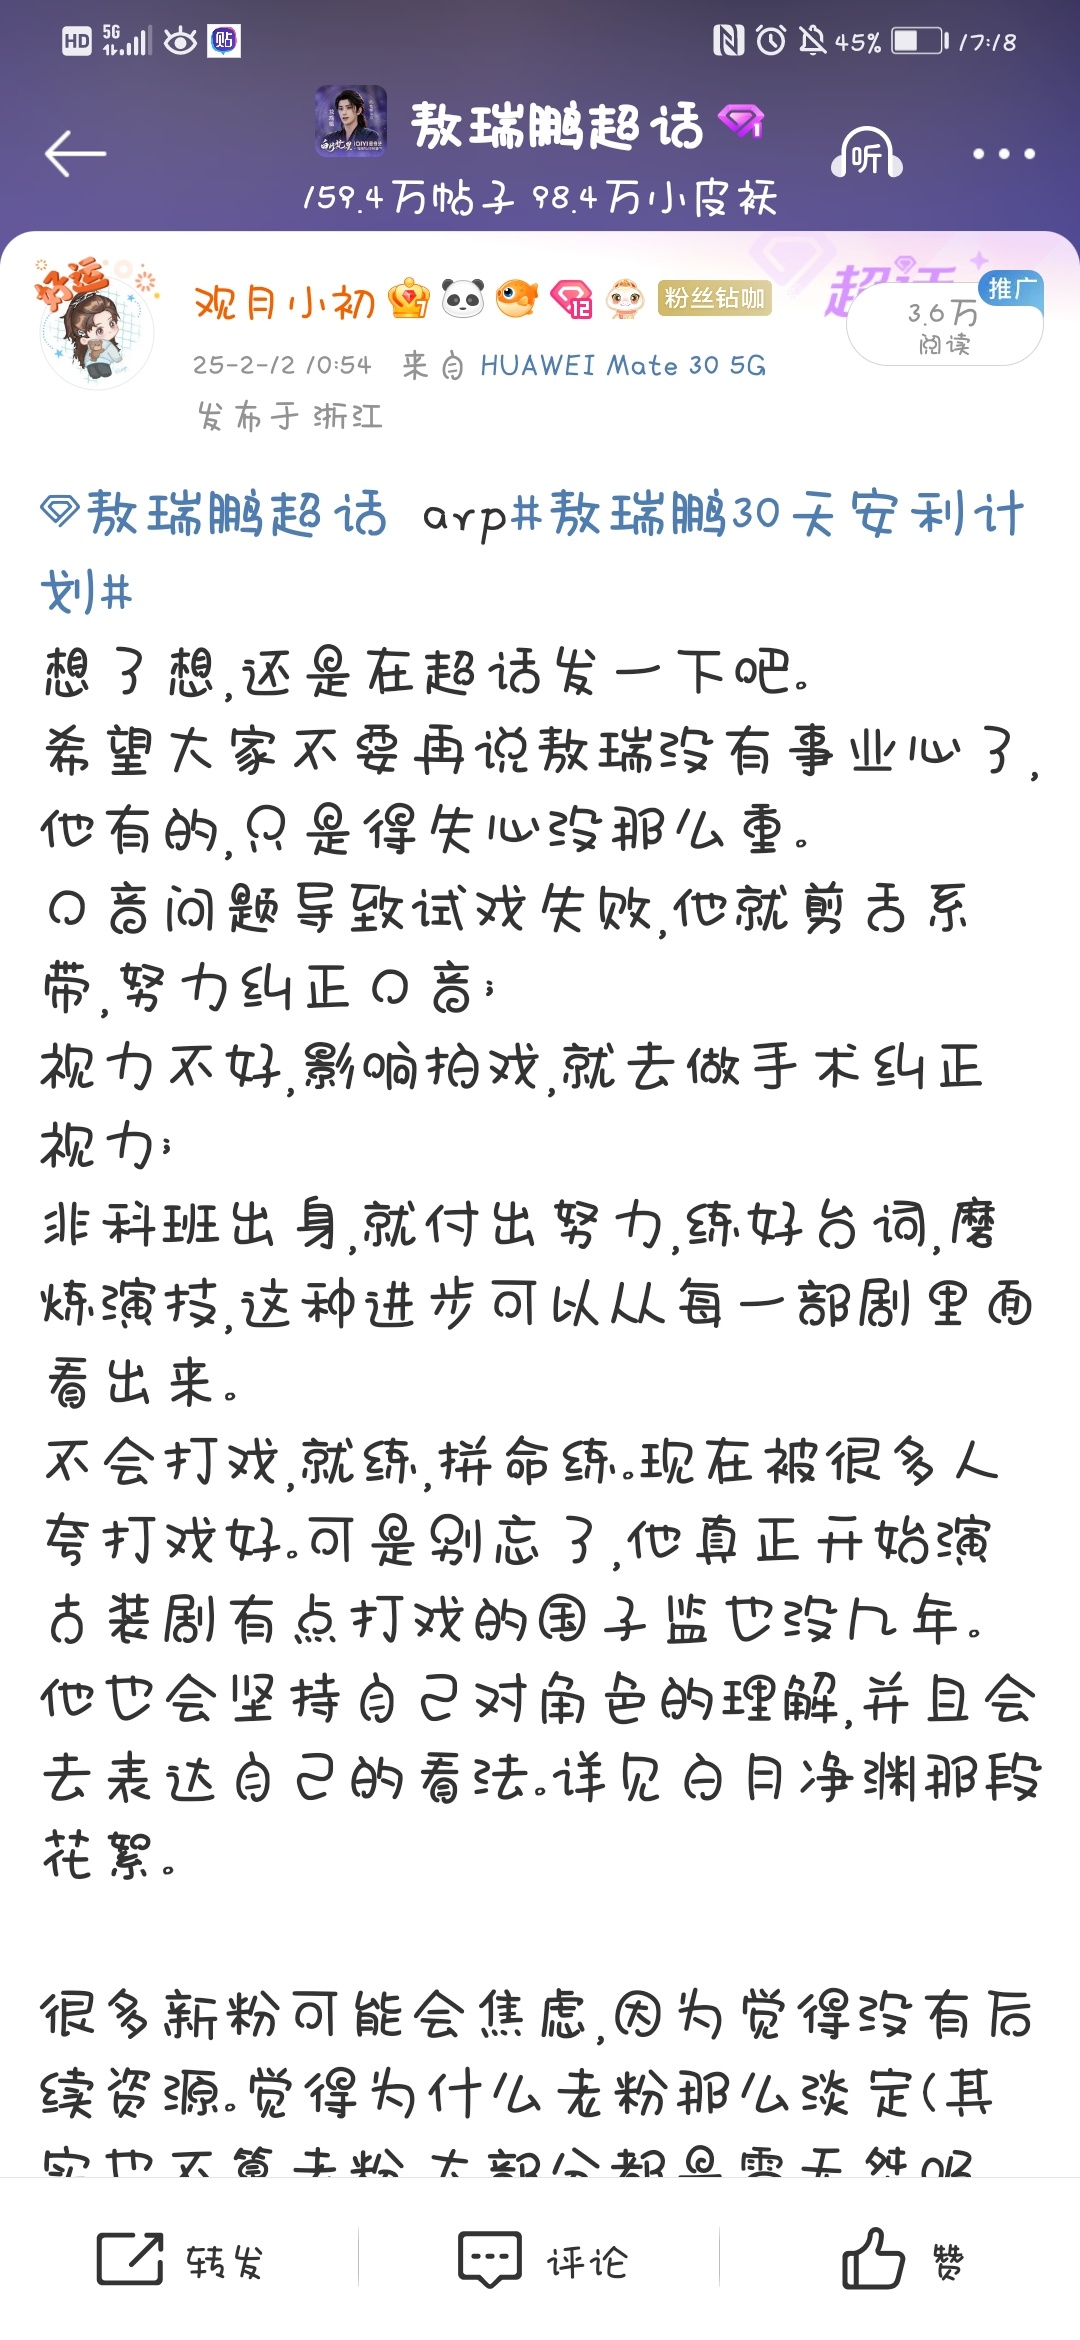 HD 5G 贴 45% 17:18
敖瑞鹏超话 1
听
159.4万帖子 98.4万小皮袄
好运
观月小初 7 12 粉丝钻咖
超话
推广
3.6万
阅读
25-2-12 10:54 来自 HUAWEI Mate 30 5G
发布于 浙江
敖瑞鹏超话 arp#敖瑞鹏30天安利计
划#
想了想,还是在超话发一下吧。
希望大家不要再说敖瑞没有事业心了,
他有的,只是得失心没那么重。
口音问题导致试戏失败,他就剪舌系
带,努力纠正口音;
视力不好,影响拍戏,就去做手术纠正
视力;
非科班出身,就付出努力,练好台词,磨
炼演技,这种进步可以从每一部剧里面
看出来。
不会打戏,就练,拼命练。现在被很多人
夸打戏好。可是别忘了,他真正开始演
古装剧有点打戏的国子监也没几年。
他也会坚持自己对角色的理解,并且会
去表达自己的看法。详见白月净渊那段
花絮。
很多新粉可能会焦虑,因为觉得没有后
续资源。觉得为什么老粉那么淡定(其
实也不算老粉,大部分都是雪无桀吧
转发 评论 赞